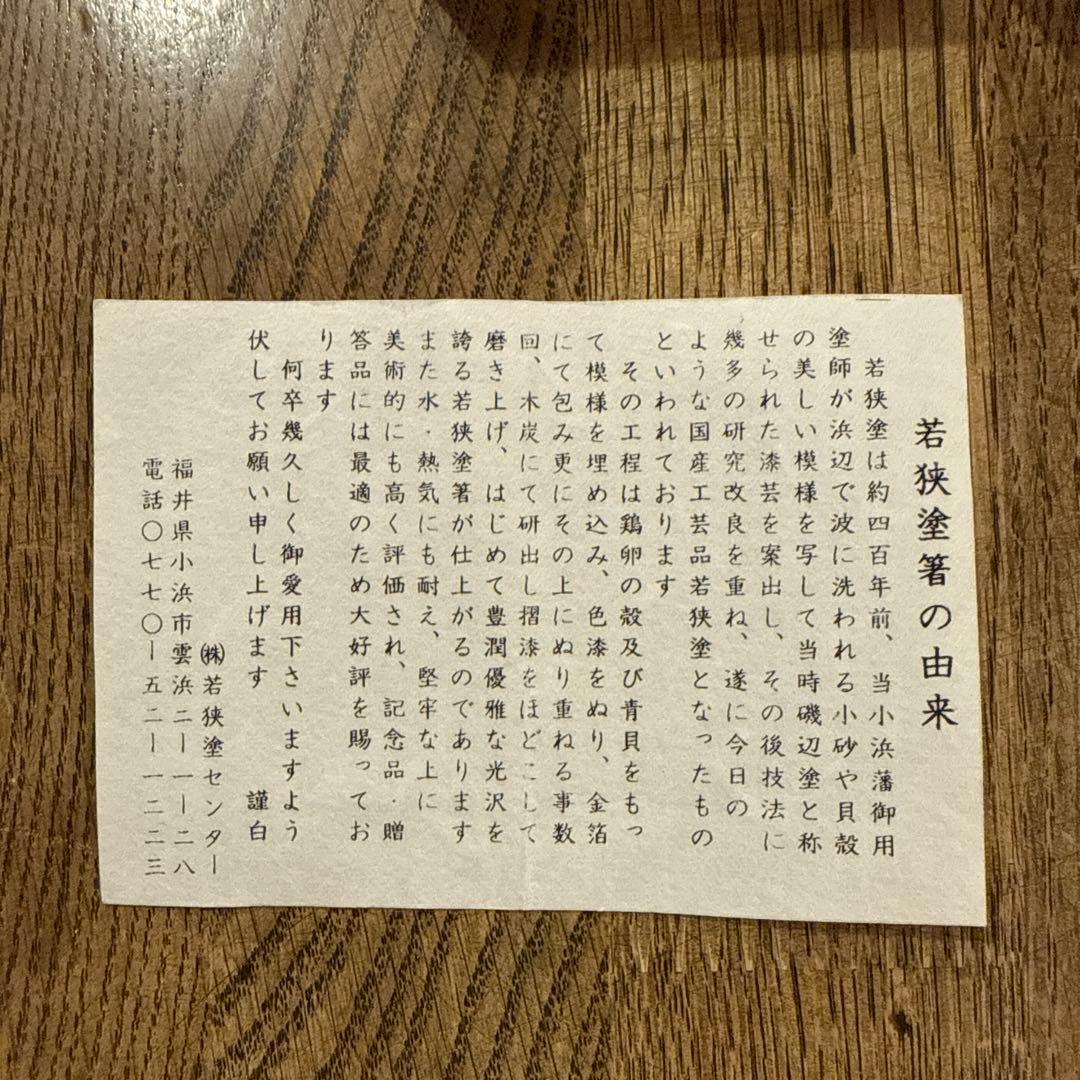 若狭塗箸の由来
若狭塗は約四百年前、当小浜藩御用
塗師が浜辺で波に洗われる小砂や貝殻
の美しい模様を写して当時磯辺塗と称
せられた漆芸を案出し、その後技法に
幾多の研究改良を重ね、遂に今日の
ような国産工芸品若狭塗となったもの
といわれております
その工程は鶏卵の殻及び青貝をもっ
て模様を埋め込み、色漆をぬり、金箔
にて包み更にその上にぬり重ねる事数
回、木炭にて研出し摺漆をほどこして
磨き上げ、はじめて豊潤優雅な光沢を
誇る若狭塗箸が仕上がるのであります
また水・熱気にも耐え、堅牢な上に
美術的にも高く評価され、記念品・贈
答品には最適のため大好評を賜ってお
ります
何卒幾久しく御愛用下さいますよう
伏してお願い申し上げます　謹白
㈱若狭塗センター
福井県小浜市雲浜二ー一ー二八
電話〇七七〇ー五二ー一二二三